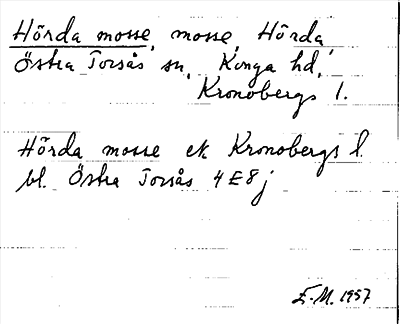 Hörda mosse, mosse, Hörda,
Östra Torsås sn, Konga hd,
Kronobergs l.
Hörda mosse ek Kronobergs l.
bl. Östra Torsås 4E8j
E-M. 1957